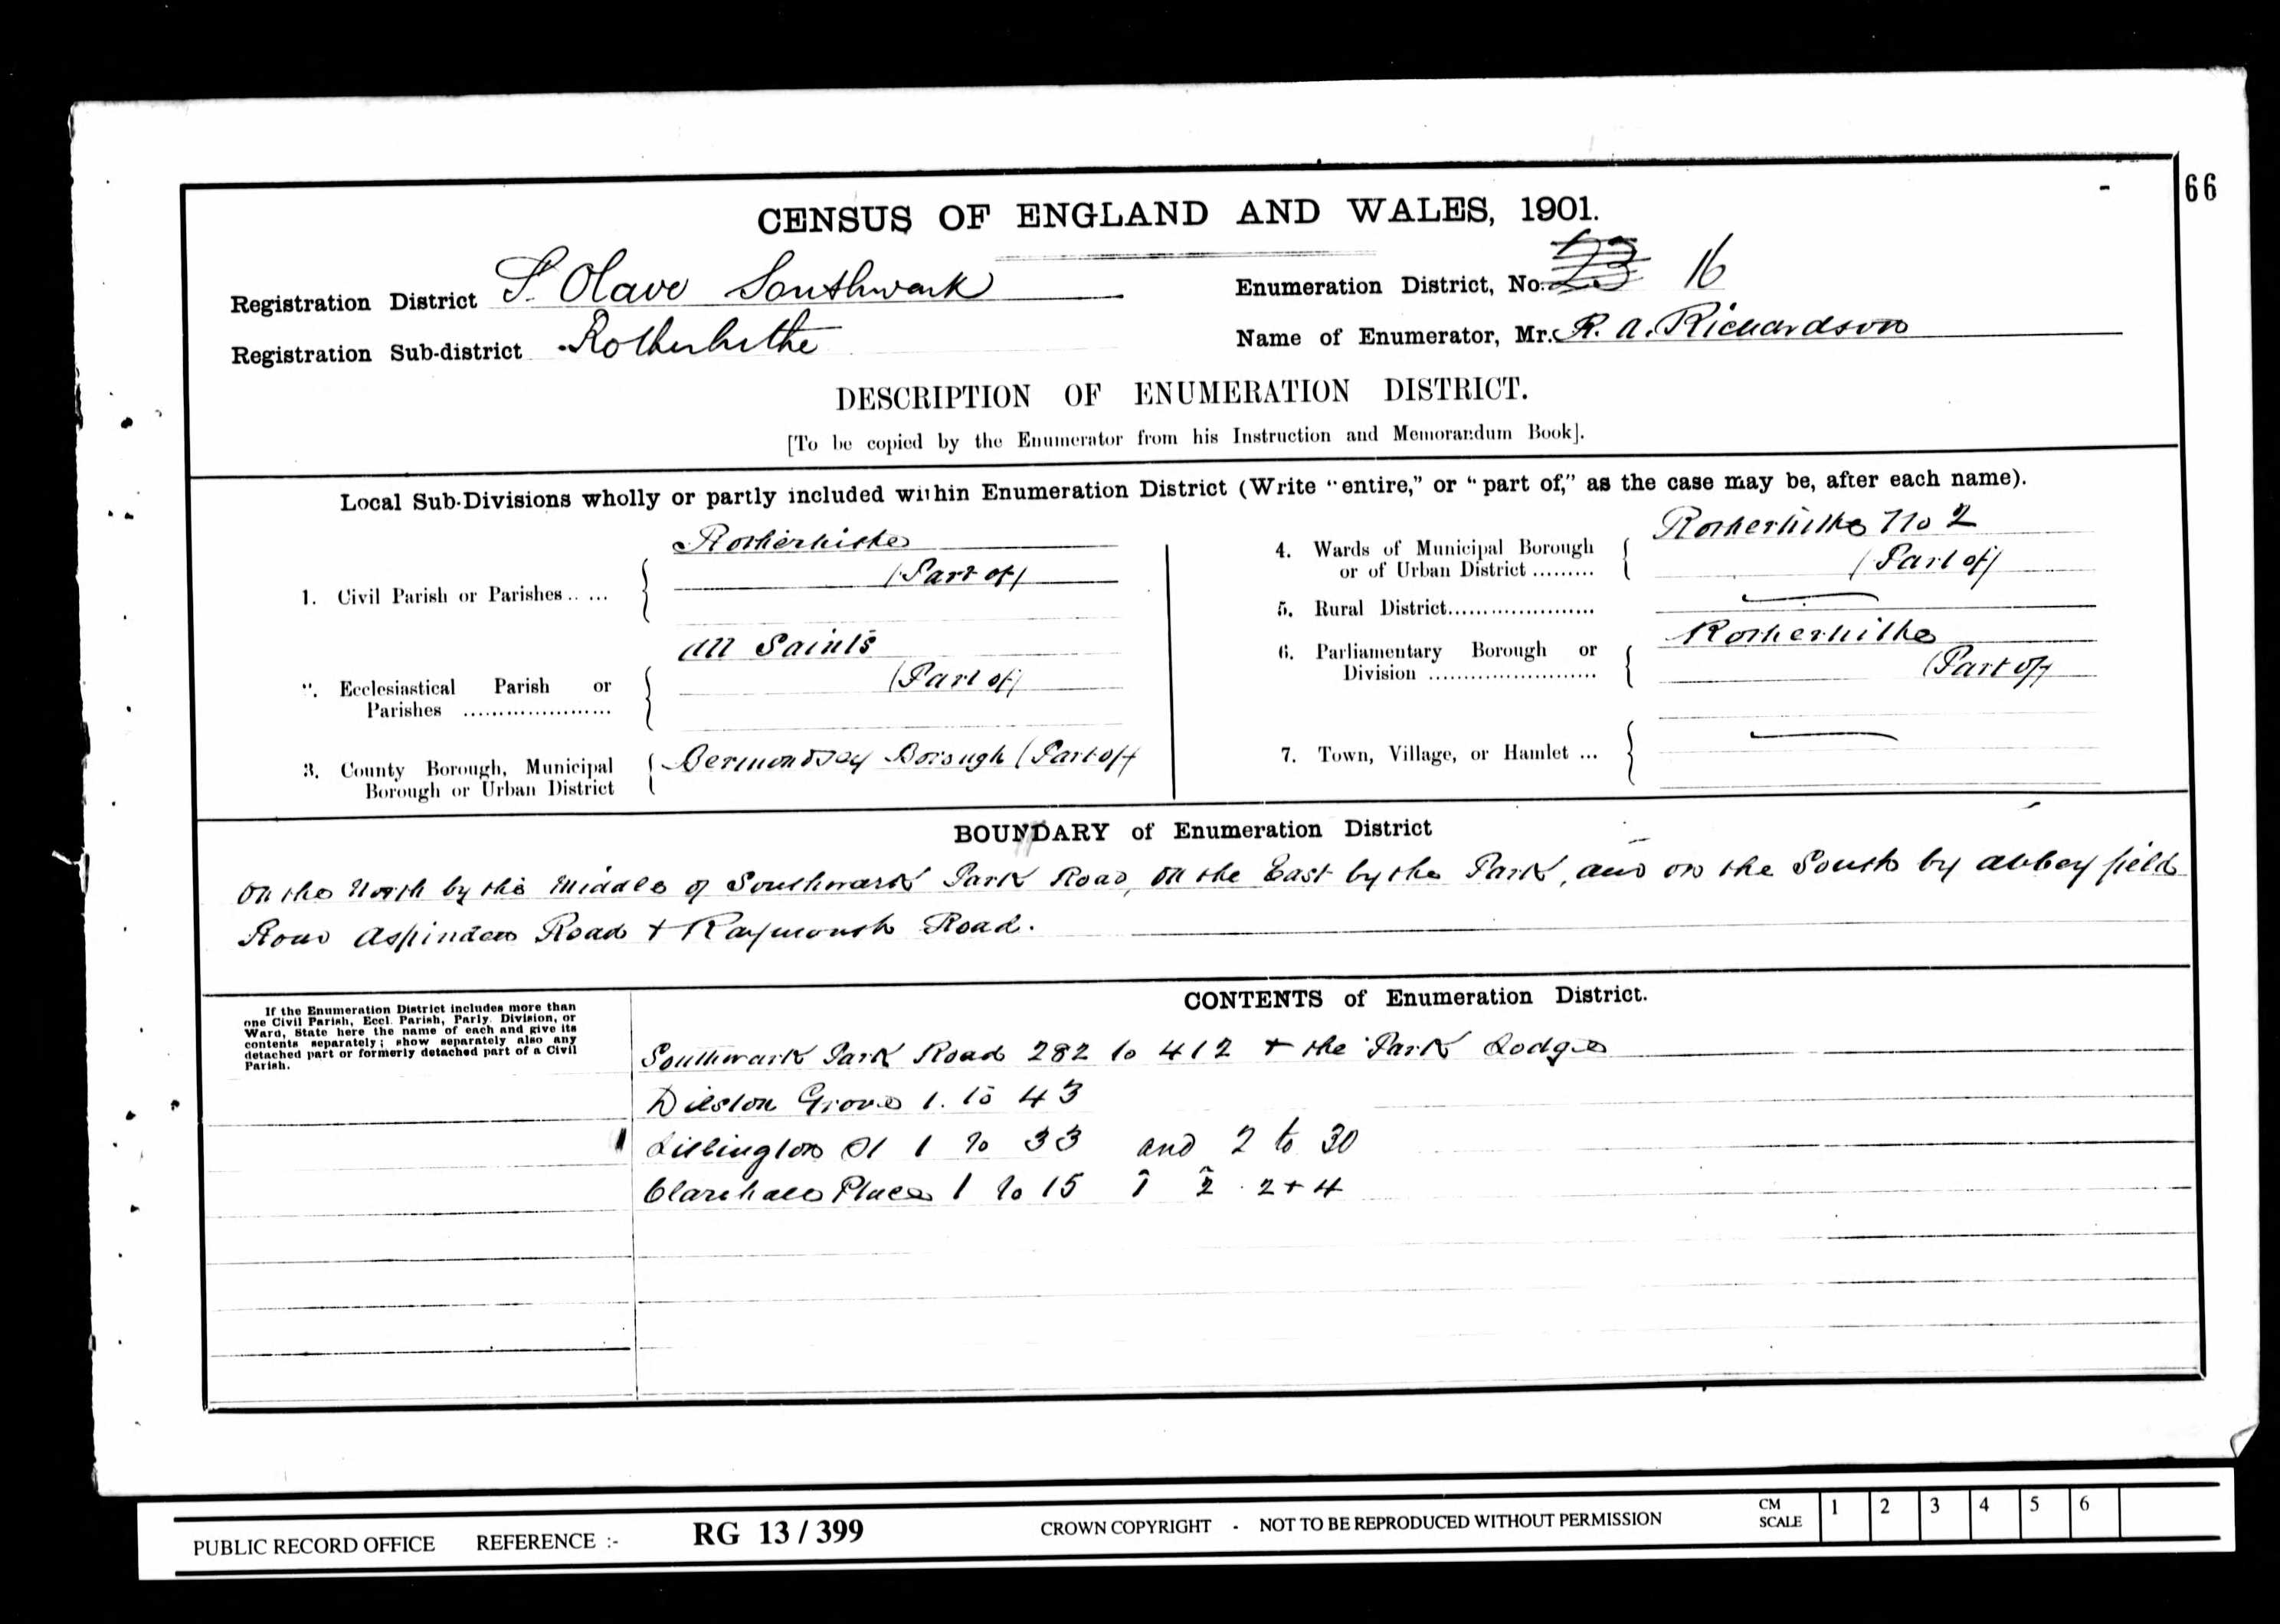 66
CENSUS OF ENGLAND AND WALES, 1901.
Registration District S. Olave Southwark
Enumeration District, No. 23 16
Registration Sub-district Rotherhithe
Name of Enumerator, Mr. R. A. Richardson
DESCRIPTION OF ENUMERATION DISTRICT.
[To be copied by the Enumerator from his Instruction and Memorandum Book].
Local Sub-Divisions wholly or partly included within Enumeration District (Write "entire," or "part of," as the case may be, after each name).
1. Civil Parish or Parishes .. ... { Rotherhithe
(Part of)
". Ecclesiastical Parish or
Parishes ..................... { All Saints
(Part of)
3. County Borough, Municipal
Borough or Urban District { Bermondsey Borough (Part of)
4. Wards of Municipal Borough
or of Urban District ......... { Rotherhithe No 2
(Part of)
5. Rural District.....................
6. Parliamentary Borough or
Division ........................ { Rotherhithe
(Part of)
7. Town, Village, or Hamlet ... {
BOUNDARY of Enumeration District
On the North by the Middle of Southwark Park Road, on the East by the Park, and on the South by Abbeyfield
Road Aspinden Road + Raymouth Road.
CONTENTS of Enumeration District.
If the Enumeration District includes more than
one Civil Parish, Eccl. Parish, Parly. Division, or
Ward, State here the name of each and give its
contents separately; show separately also any
detached part or formerly detached part of a Civil
Parish.
Southwark Park Road 282 to 412 + the Park Lodge
Dilston Grove 1. to 43
Lillington St 1 to 33 and 2 to 30
Place 1 to 15 2 + 4
PUBLIC RECORD OFFICE REFERENCE :- RG 13 / 399 CROWN COPYRIGHT - NOT TO BE REPRODUCED WITHOUT PERMISSION
CM
SCALE 1 2 3 4 5 6